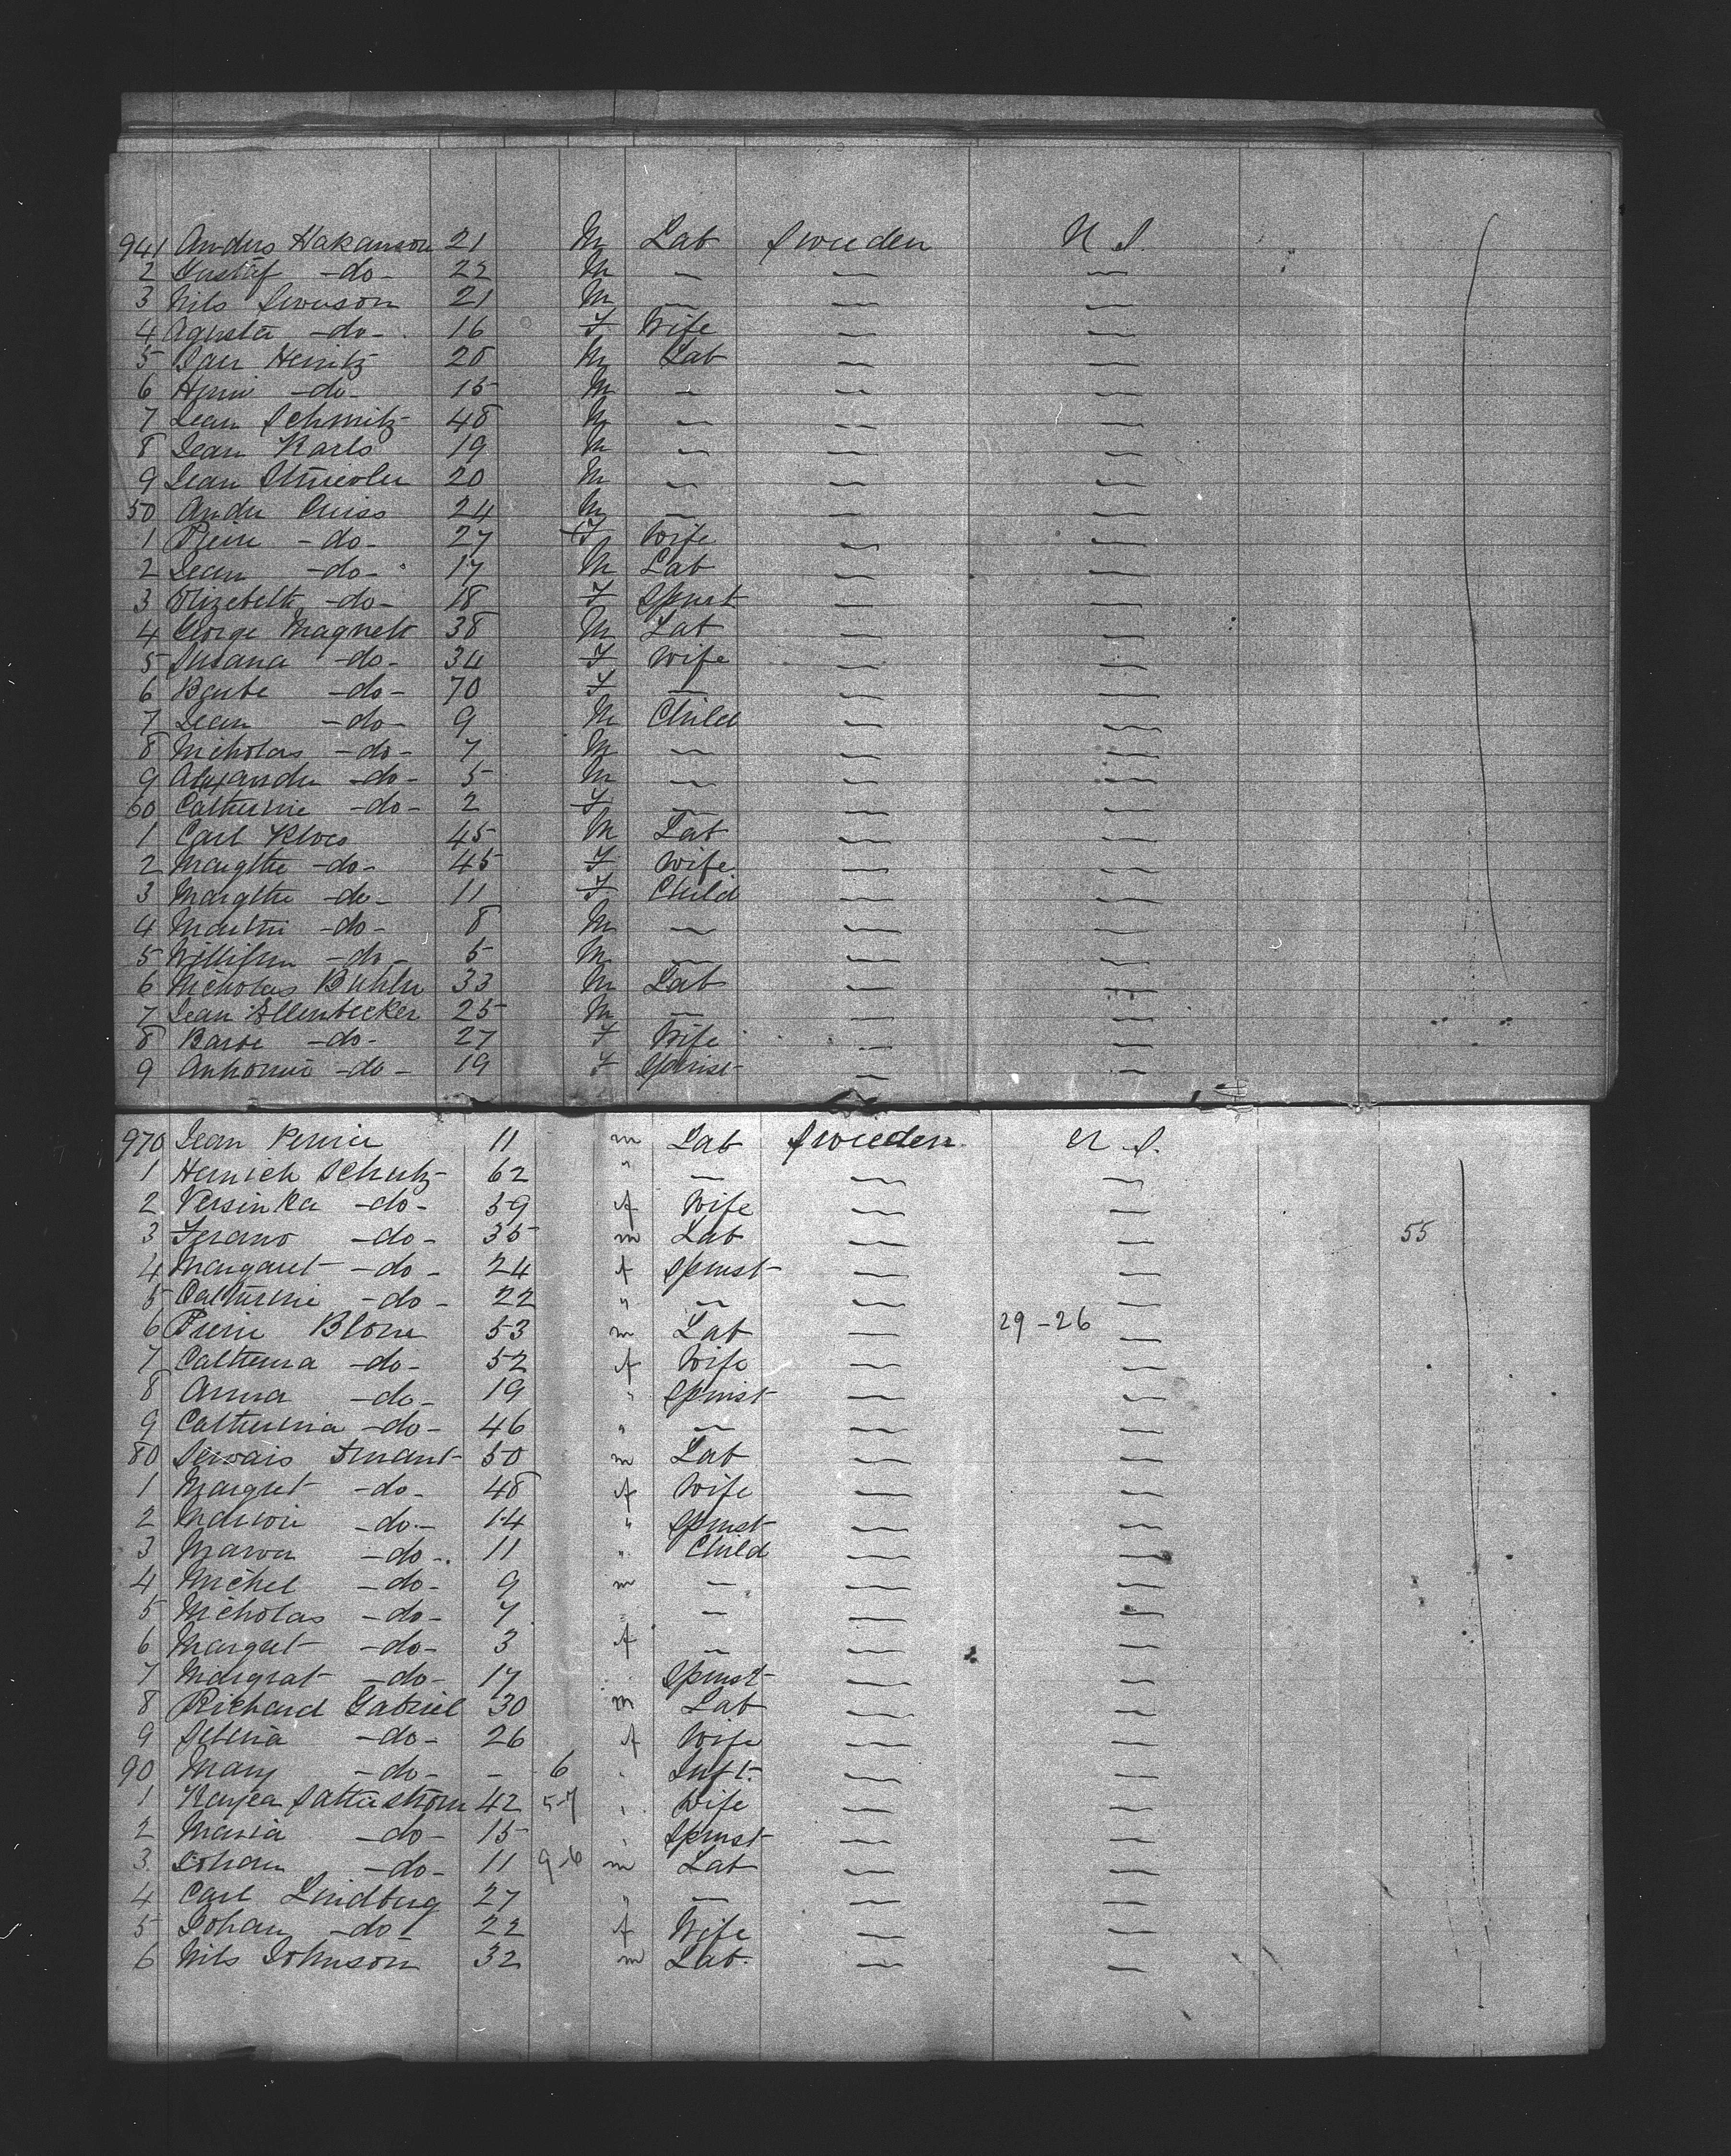 941 Anders Hakanson 21 M Lab Sweden U S.
2 Gustaf -do- 22 M — — —
3 Nils Swenson 21 M — — —
4 Agusta -do- 16 F Wife — —
5 Henitz 20 M Lab — —
6 Henri -do- 15 M — — —
7 Jean Schmitz 48 M — — —
8 Jean Karls 19 M — — —
9 Jean 20 M — — —
50 Andre 24 M — — —
1 Pierre -do- 27 F Wife — —
2 Jean -do- 17 M Lab — —
3 Elizebeth -do- 18 F Spinst — —
4 George Magnett 38 M Lab — —
5 Susana -do- 34 F Wife — —
6 -do- 70 F — — —
7 Jean -do- 9 M Child — —
8 Nicholas -do- 7 M — — —
9 Alexandre -do- 5 M — — —
60 Catherine -do- 2 F — — —
1 Carl Kloes 45 M Lab — —
2 Margthe -do- 45 F Wife — —
3 Margthe -do- 11 F Child — —
4 -do- 8 M — — —
5 -do- 5 M — — —
6 Nicholas Buhler 33 M Lab — —
7 Jean Ellenbecker 25 M — — —
8 Barbe -do- 27 F Wife — —
9 Antonio -do- 19 F Spinst — —
970 Jean 11 m Lab Sweden U S.
1 Henrich Schutz 62 " — — —
2 -do- 59 f Wife — —
3 -do- 35 m Lab — — 55
4 Margaret -do- 24 f Spinst — —
5 Catherine -do- 22 " — — —
6 Pierre Blom 53 m Lab — 29-26 —
7 Catherina -do- 52 f Wife — —
8 Anna -do- 19 " Spinst — —
9 Catherina -do- 46 " — — —
80 Servais 50 m Lab — —
1 Margret -do- 48 f Wife — —
2 -do- 14 " Spinst — —
3 -do- 11 " Child — —
4 Michel -do- 9 m — — —
5 Nicholas -do- 7 " — — —
6 Margret -do- 3 f — — —
7 Margrat -do- 17 " Spinst — —
8 Richard Gabriel 30 m Lab — —
9 -do- 26 f Wife — —
90 Mary -do- - 6 " Inft. — —
1 42 5-7 " Wife — —
2 Maria -do- 15 " Spinst — —
3 Johan -do- 11 9-6 m Lab — —
4 Carl Lindberg 27 " — — —
5 Johan -do- 22 f Wife — —
6 Nils Johnson 32 m Lab. — —